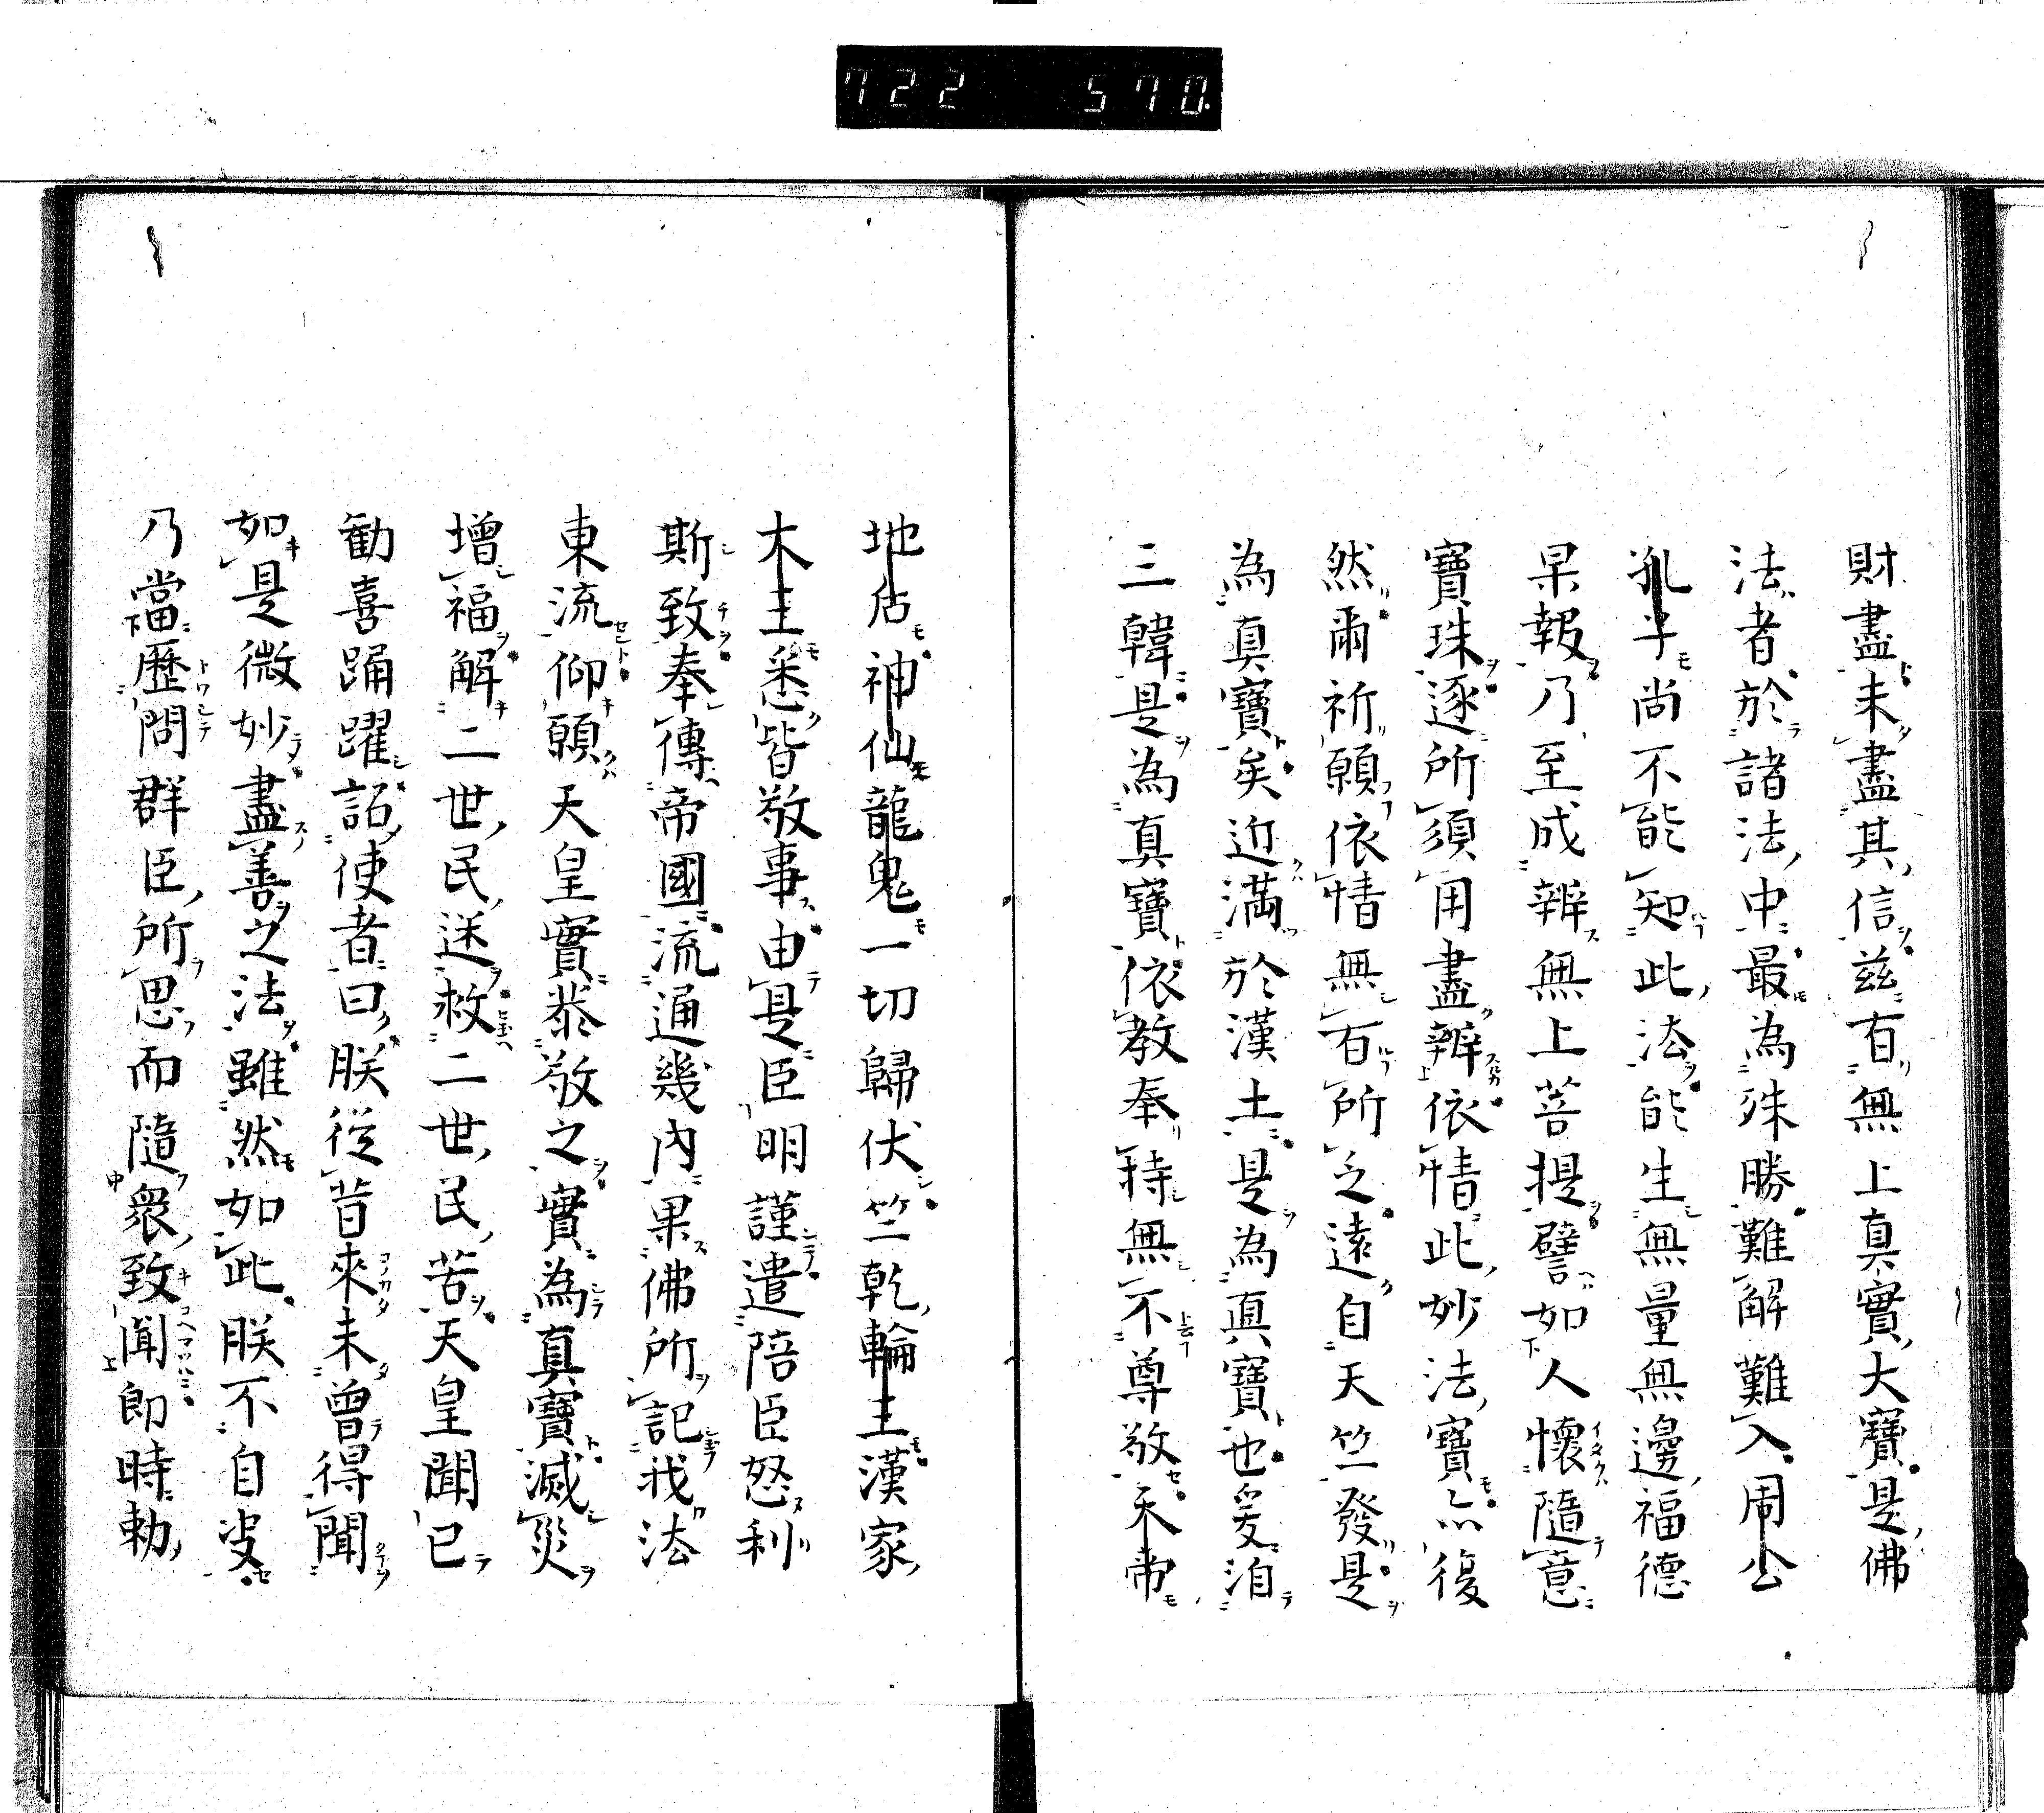 722 570.
財盡未盡其信兹有無上真實大寶是佛
法者於諸法中最為殊勝難解難入周公
孔子尚不能知此法能生無量無邊福德
果報乃至成辨無上菩提譬如人懷隨意
寶珠逐所須用盡辨依情此妙法寶亦復
然爾祈願依情無有所乏遠自天竺發是
為真寶矣近滿於漢土是為真寶也爰洎
三韓是為真寶依教奉持無不尊敬天帝
地居神仙龍鬼一切歸伏竺乾輪王漢家
木主悉皆敬事由是臣明謹遣陪臣怒利
斯致奉傳帝國流通幾內果佛所記我法
東流仰願天皇實恭敬之實為真寶滅災
增福解二世民迷救二世民苦天皇聞已
勸喜踊躍詔使者曰朕從昔來未曾得聞
如是微妙盡善之法雖然如此朕不自定
乃當歷問群臣所思而隨衆致聞即時勅